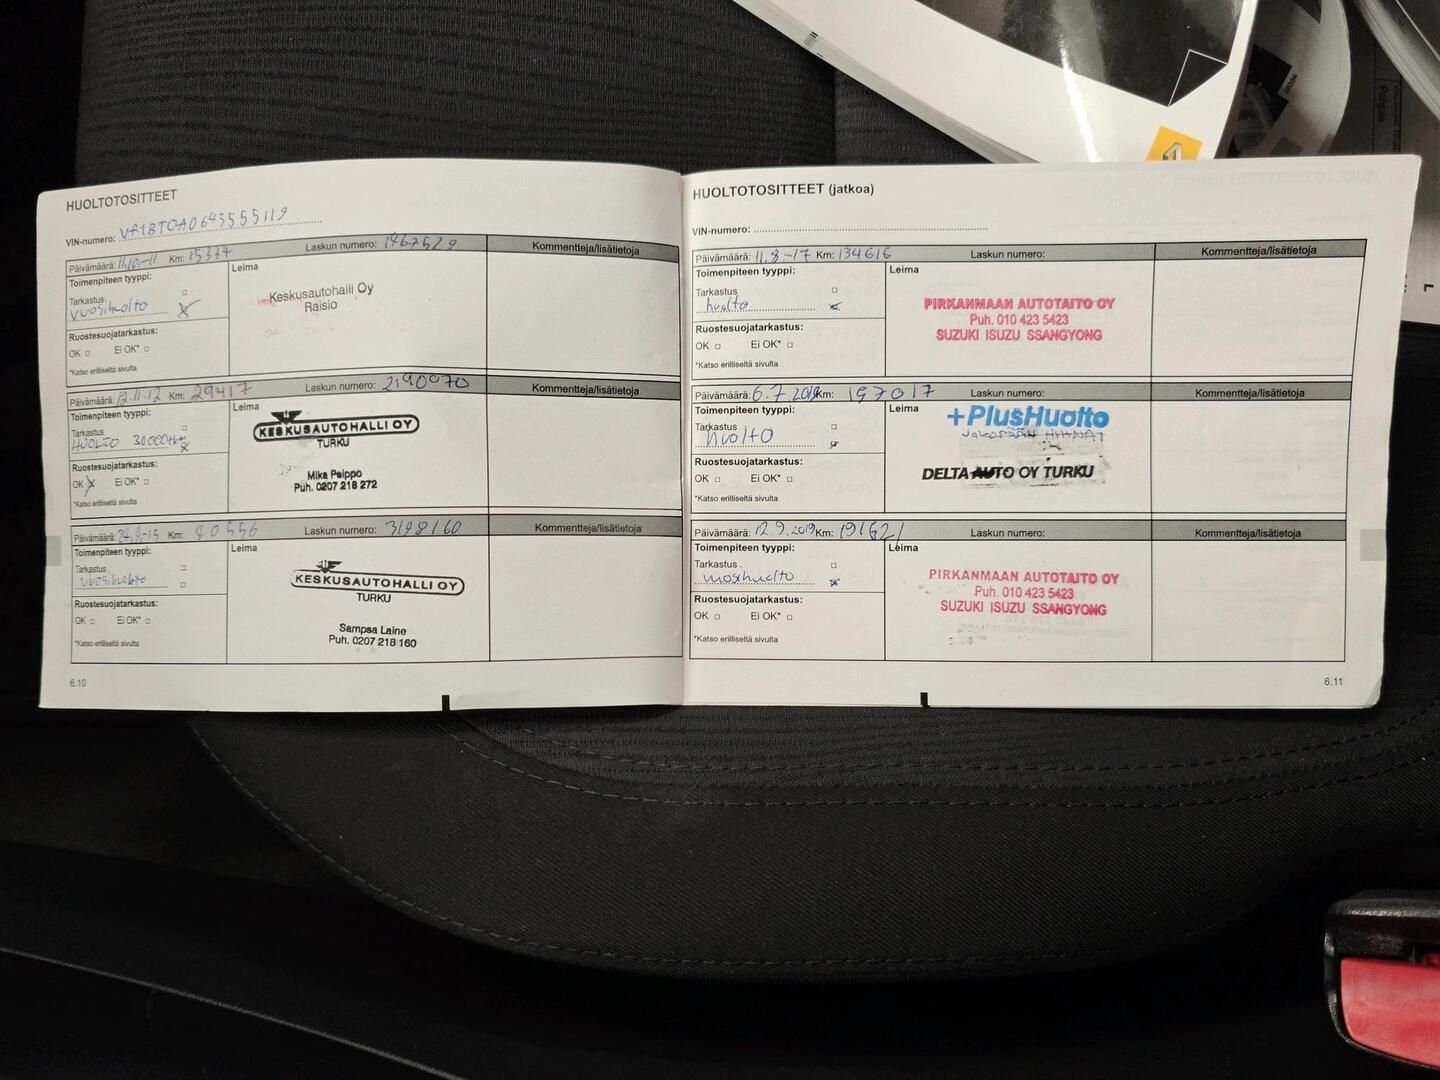 HUOLTOTOSITTEET
VIN-numero: VF1BT0A0643555119
Päivämäärä: 11.10.-11 Km: 15334 Laskun numero: 1967529 Kommentteja/lisätietoja
Toimenpiteen tyyppi:
Tarkastus
vuosihuolto
Ruostesuojatarkastus:
OK Ei OK*
*Katso erilliseltä sivulta
Leima
Keskusautohalli Oy
Raisio
Päivämäärä: 12.11.12 Km: 29417 Laskun numero: 2190070 Kommentteja/lisätietoja
Toimenpiteen tyyppi:
Tarkastus
HUOLTO 30000km
Ruostesuojatarkastus:
OK Ei OK*
*Katso erilliseltä sivulta
Leima
KESKUSAUTOHALLI OY
TURKU
Mika Peippo
Puh. 0207 218 272
Päivämäärä: 24.9.-13 Km: 40556 Laskun numero: 3198160 Kommentteja/lisätietoja
Toimenpiteen tyyppi:
Tarkastus
vuosihuolto
Ruostesuojatarkastus:
OK Ei OK*
*Katso erilliseltä sivulta
Leima
KESKUSAUTOHALLI OY
TURKU
Sampsa Laine
Puh. 0207 218 160
6.10
HUOLTOTOSITTEET (jatkoa)
VIN-numero:
Päivämäärä: 11.8.-17 Km: 134616 Laskun numero: Kommentteja/lisätietoja
Toimenpiteen tyyppi:
Tarkastus
huolto
Ruostesuojatarkastus:
OK Ei OK*
*Katso erilliseltä sivulta
Leima
PIRKANMAAN AUTOTAITO OY
Puh. 010 423 5423
SUZUKI ISUZU SSANGYONG
Päivämäärä: 6.7.2018 Km: 197017 Laskun numero: Kommentteja/lisätietoja
Toimenpiteen tyyppi:
Tarkastus
huolto
Ruostesuojatarkastus:
OK Ei OK*
*Katso erilliseltä sivulta
Leima
+PlusHuolto
JAKOPÄÄN HIHNAT
DELTA AUTO OY TURKU
Päivämäärä: 12.9.2019 Km: 191621 Laskun numero: Kommentteja/lisätietoja
Toimenpiteen tyyppi:
Tarkastus
vuosihuolto
Ruostesuojatarkastus:
OK Ei OK*
*Katso erilliseltä sivulta
Leima
PIRKANMAAN AUTOTAITO OY
Puh. 010 423 5423
SUZUKI ISUZU SSANGYONG
6.11